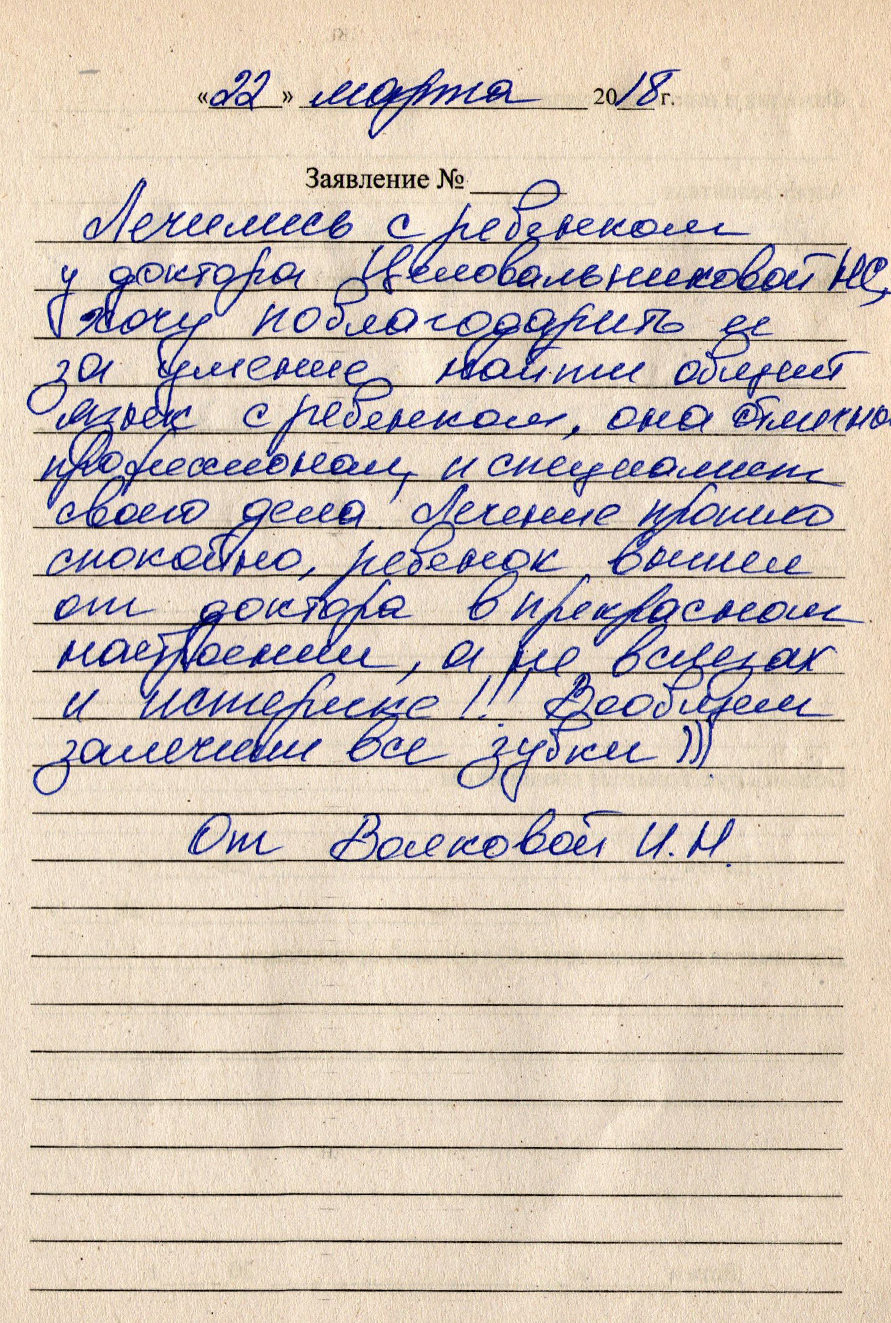 «22» марта 2018 г.
Заявление №
Лечились с ребенком
у доктора Целовальниковой НС,
хочу поблагодарить ее
за умение найти общий
язык с ребенком, она отлично
профессионал, и специалист
своего дела. Лечение прошло
спокойно, ребенок вышел
от доктора в прекрасном
настроении, а не в слезах
и истерике!!! Вообщем
залечили все зубки )))
От Волковой И.Н.